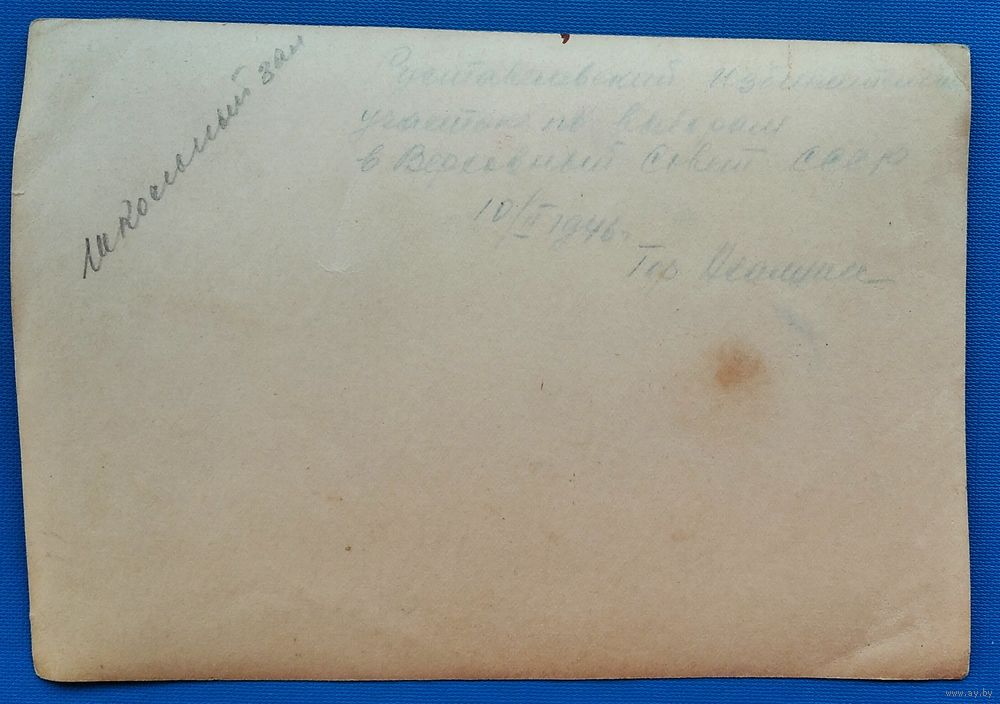 школьный зал
избирательный
участок по выборам
в Верховный Совет СССР
10/II 1946г.
Гор.
www.ay.by